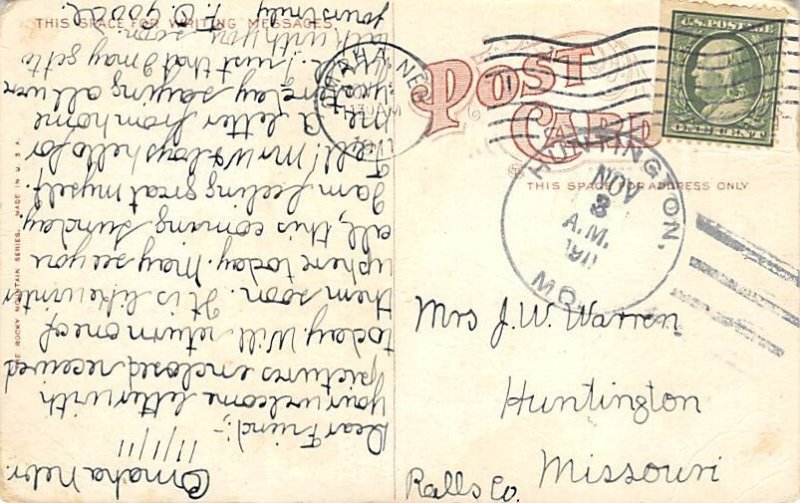 THIS SPACE FOR WRITING MESSAGES.
POST
CARD
THIS SPACE FOR ADDRESS ONLY
U.S. POSTAGE
ONE CENT
HUNTINGTON,
NOV
3
A.M.
MO.
Mrs J. W. Warren
Huntington
Missouri
Ralls Co.
Omaha Nebr.
11/1/11
Dear Friend;-
your welcome letter with
pictures enclosed, received
today. Will return one of
them soon. It is like winter
up here today. May see you
all, this coming Sunday
I am feeling great myself.
Tell! Mr W & boys hello for
me. A letter from home
yesterday saying all well
just that I may get to
talk with you soon.
yours truly
THE ROCKY MOUNTAIN SERIES. MADE IN U.S.A.